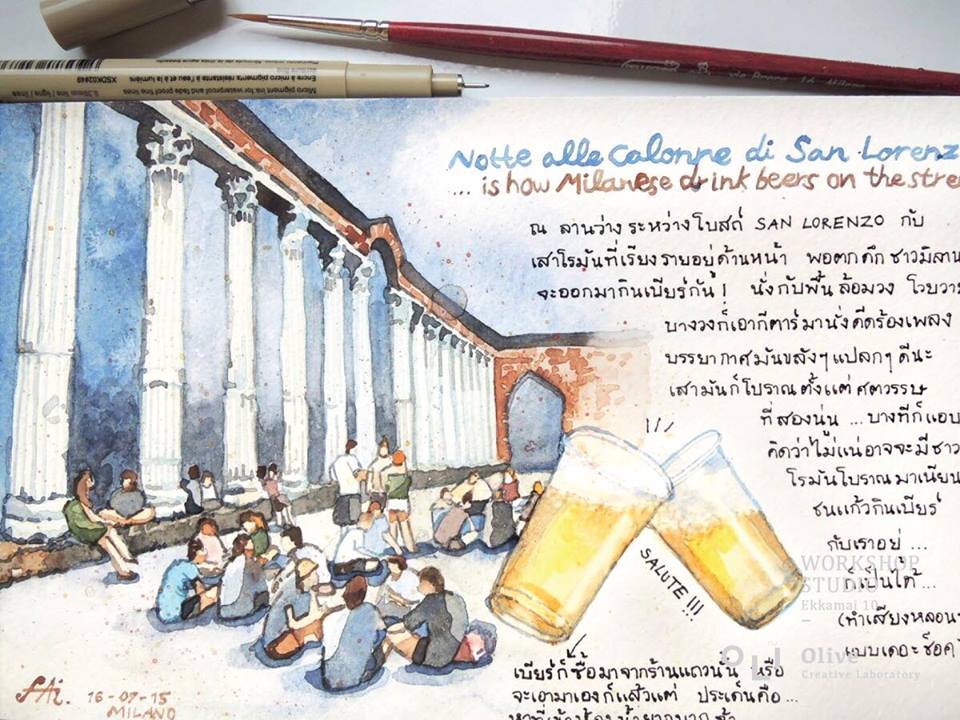 XSDK02#49
Micro pigment ink for waterproof and fade proof lines
Encre à micro pigments résistante à l'eau et à la lumière
Notte alle Colonne di San Lorenz
... is how Milanese drink beers on the stre
ณ ลานว่าง ระหว่างโบสถ์ SAN LORENZO กับ
เสาโรมันที่เรียงรายอยู่ด้านหน้า พอตกดึก ชาวมิลาน
จะออกมากินเบียร์กัน! นั่งกับพื้น ล้อมวง โวยวาย
บางวงก็เอากีตาร์มานั่งดีดร้องเพลง
บรรยากาศมันขลังๆ แปลกๆ ดีนะ
เสามันก็โบราณตั้งแต่ศตวรรษ
ที่สองนู่น ... บางทีก็แอบ
คิดว่าไม่แน่อาจจะมีชาว
โรมันโบราณมาเนียน
ชนแก้วกินเบียร์
กับเราอยู่ ...
ก็เป็นได้ ...
(ทำเสียงหลอน
แบบเดอะช็อค
SALUTE !!!
เบียร์ก็ซื้อมาจากร้านแถวนั้น หรือ
จะเอามาเองก็แล้วแต่ ประเด็นคือ...
fAi.
16-07-15
MILANO
WORKSHOP
STUDIO
Ekkamai 10
OLI
Olive
Creative Laboratory